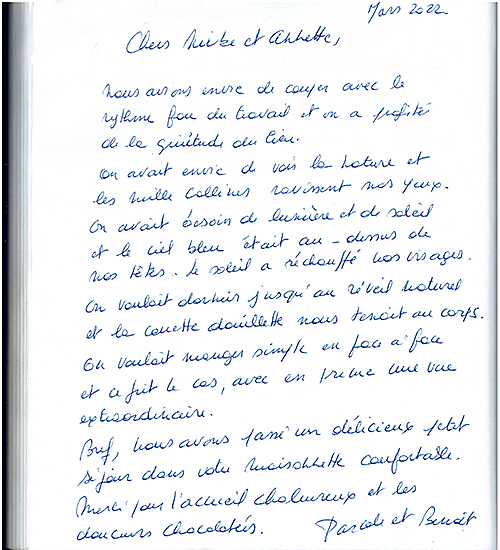 Mars 2022
Chers Mietze et Annette,
Nous avions envie de couper avec le
rythme fou du travail et on a profité
de la quiétude du lieu.
On avait envie de voir la nature et
les mille collines ravissent nos yeux.
On avait besoin de lumière et de soleil
et le ciel bleu était au-dessus de
nos têtes. Le soleil a réchauffé nos visages.
On voulait dormir jusqu'au réveil naturel
et la couette douillette nous tenait au corps.
On voulait manger simple en face à face
et ce fut le cas, avec en prime une vue
extraordinaire.
Bref, nous avons passé un délicieux petit
séjour dans votre maisonnette confortable.
Merci pour l'accueil chaleureux et les
douceurs chocolatées.
Pascale et Benoît